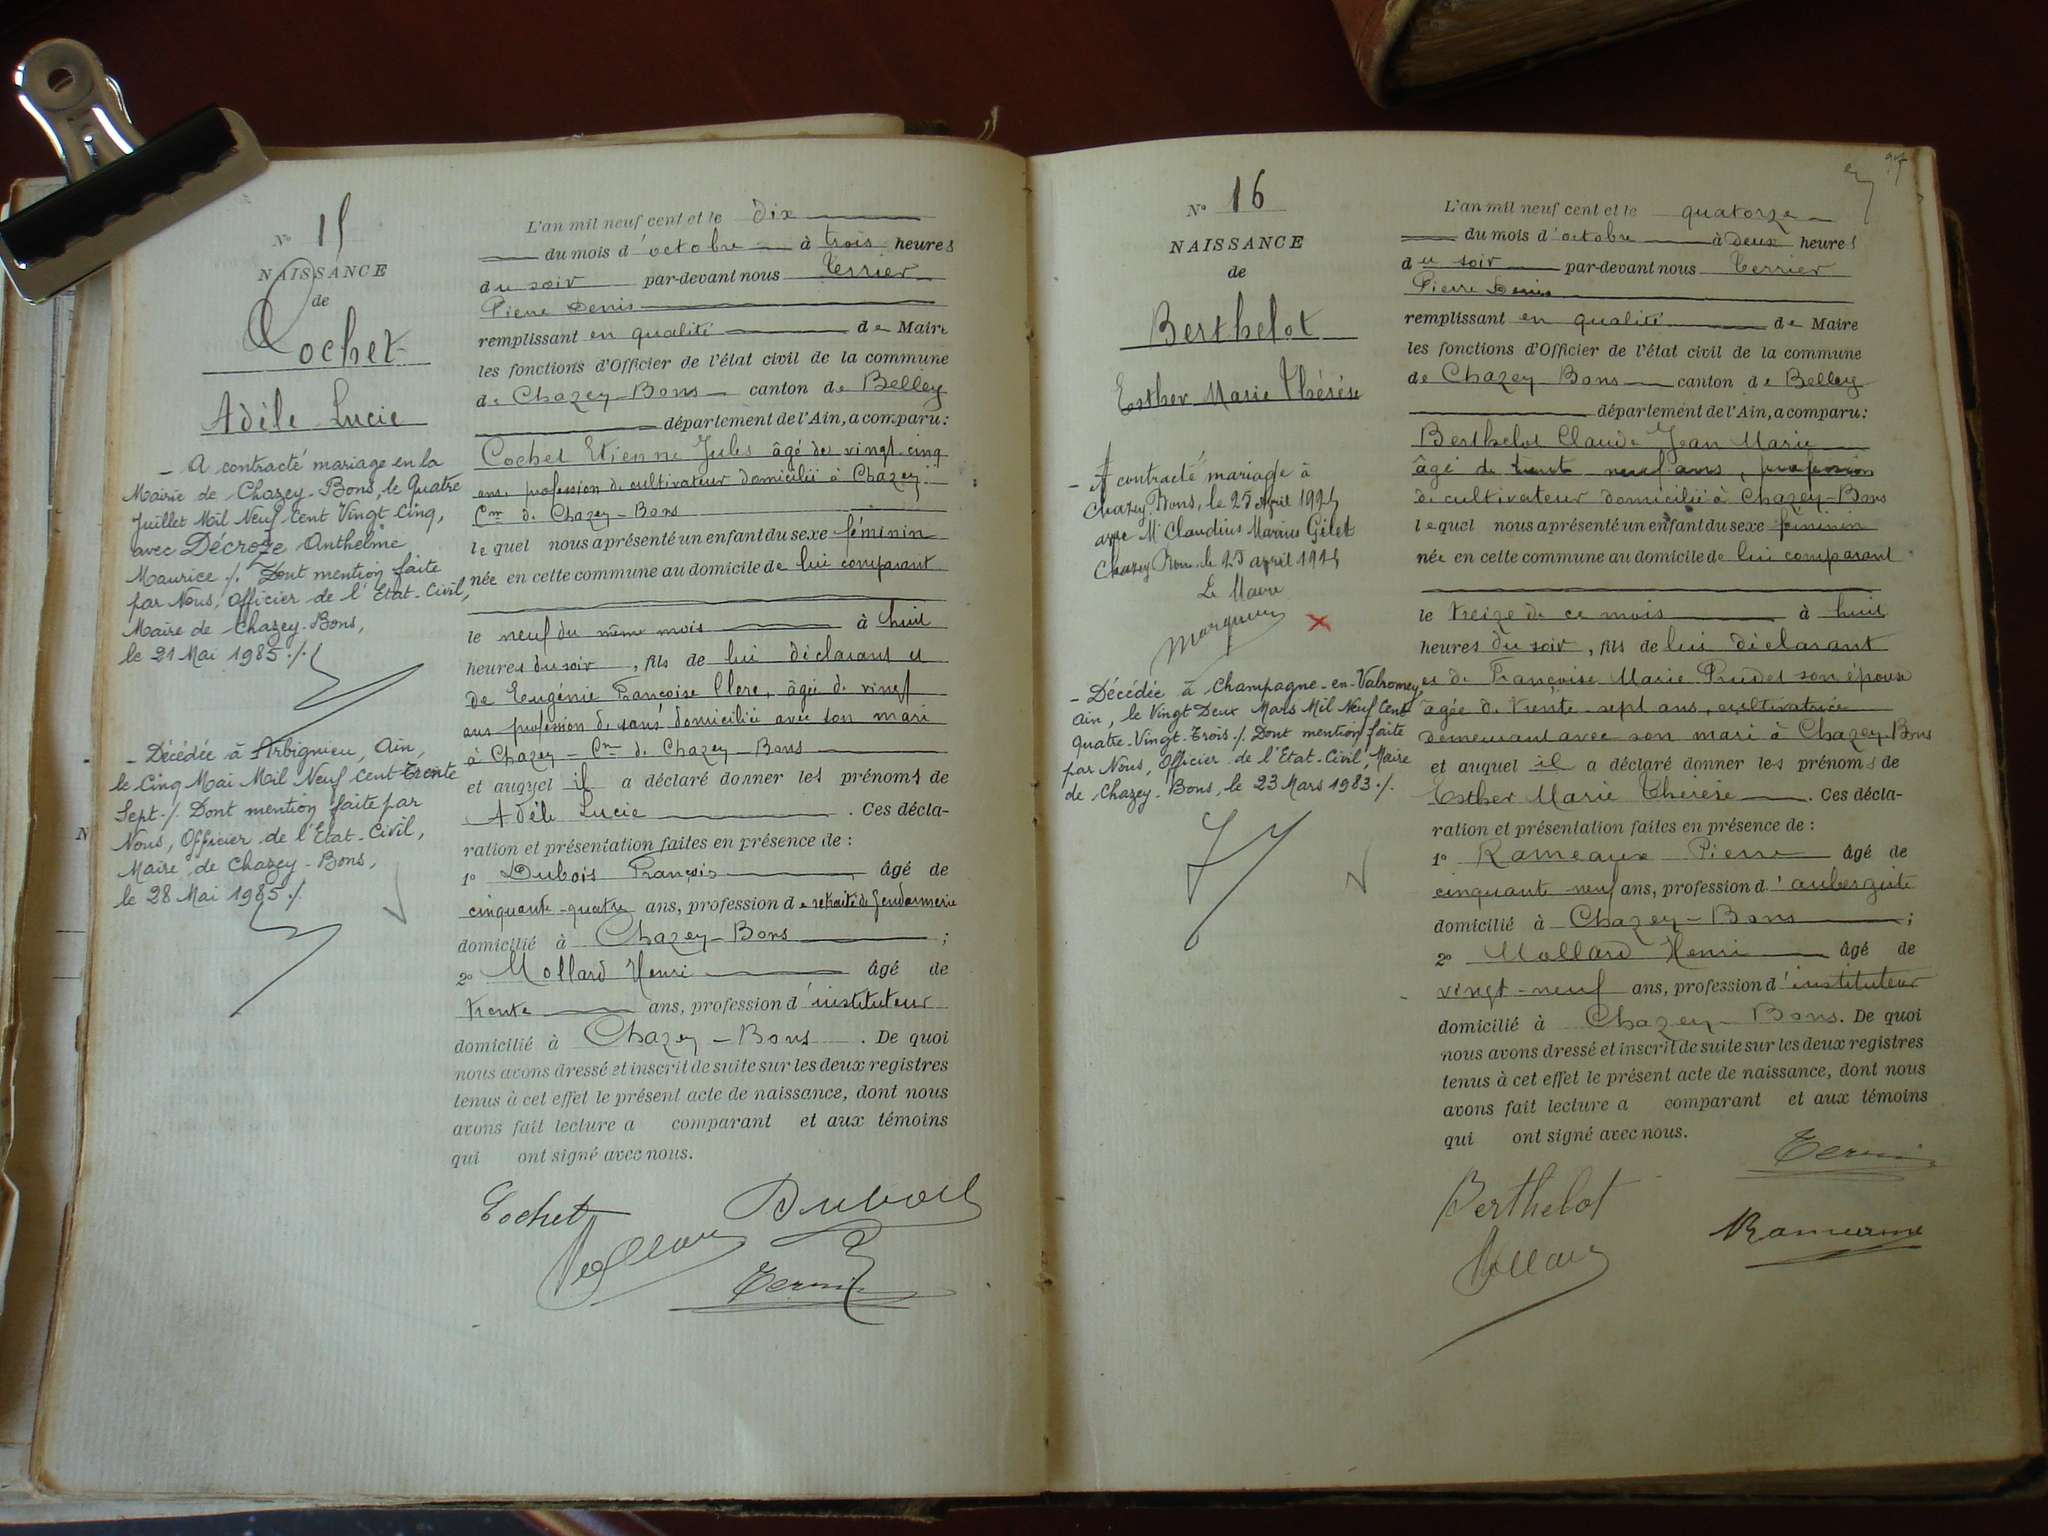 N° 15
NAISSANCE
de
Cochet
Adèle Lucie
_ A contracté mariage en la
Mairie de Chazey-Bons, le Quatre
Juillet Mil Neuf Cent Vingt Cinq,
avec Décroze Anthelme
Maurice ./. Dont mention faite
par Nous, Officier de l'Etat-Civil,
Maire de Chazey-Bons,
le 21 Mai 1985 ./.
_ Décédée à Arbignieu, Ain,
le Cinq Mai Mil Neuf Cent Trente
Sept ./. Dont mention faite par
Nous, Officier de l'Etat-Civil,
Maire de Chazey-Bons,
le 28 Mai 1985 ./.
L'an mil neuf cent et le dix
du mois d'octobre à trois heures
du soir par-devant nous Terrier
Pierre Denis
remplissant en qualité de Maire
les fonctions d'Officier de l'état civil de la commune
de Chazey-Bons canton de Belley
département de l'Ain, a comparu:
Cochet Etienne Jules âgé de vingt cinq
ans, profession de cultivateur domicilié à Chazey
Cne de Chazey-Bons
lequel nous a présenté un enfant du sexe féminin
née en cette commune au domicile de lui comparant
le neuf du même mois à huit
heures du soir, fils de lui déclarant et
de Eugénie Françoise Clerc, âgée de vingt
ans profession de sans domiciliée avec son mari
à Chazey - Cne de Chazey-Bons
et auquel il a déclaré donner les prénoms de
Adèle Lucie . Ces décla-
ration et présentation faites en présence de :
1° Dubois François âgé de
cinquante-quatre ans, profession de retraité de Gendarmerie
domicilié à Chazey-Bons ;
2° Mollard Henri âgé de
trente ans, profession d'instituteur
domicilié à Chazey-Bons . De quoi
nous avons dressé et inscrit de suite sur les deux registres
tenus à cet effet le présent acte de naissance, dont nous
avons fait lecture a comparant et aux témoins
qui ont signé avec nous.
Cochet Dubois
Mollard
Terrier
N
97
N° 16
NAISSANCE
de
Berthelot
Esther Marie Thérèse
_ A contracté mariage à
Chazey-Bons, le 25 Avril 1925
avec Mr Claudius Marius Gilet
Chazey Bons le 25 avril 1925
Le Maire
_ Décédée à Champagne-en-Valromey,
Ain, le Vingt Deux Mars Mil Neuf Cent
Quatre-Vingt-Trois ./. Dont mention faite
par Nous, Officier de l'Etat-Civil, Maire
de Chazey-Bons, le 23 Mars 1983 ./.
L'an mil neuf cent et le quatorze
du mois d'octobre à deux heures
du soir par-devant nous Terrier
Pierre Denis
remplissant en qualité de Maire
les fonctions d'Officier de l'état civil de la commune
de Chazey-Bons canton de Belley
département de l'Ain, a comparu:
Berthelot Claude Jean Marie
âgé de trente neuf ans, profession
de cultivateur domicilié à Chazey-Bons
lequel nous a présenté un enfant du sexe féminin
née en cette commune au domicile de lui comparant
le treize de ce mois à huit
heures du soir, fils de lui déclarant
et de Françoise Marie Prudet son épouse
âgée de trente-sept ans, cultivatrice
demeurant avec son mari à Chazey-Bons
et auquel il a déclaré donner les prénoms de
Esther Marie Thérèse . Ces décla-
ration et présentation faites en présence de :
1° Rameaux Pierre âgé de
cinquante neuf ans, profession d'aubergiste
domicilié à Chazey-Bons ;
2° Mollard Henri âgé de
vingt-neuf ans, profession d'instituteur
domicilié à Chazey-Bons. De quoi
nous avons dressé et inscrit de suite sur les deux registres
tenus à cet effet le présent acte de naissance, dont nous
avons fait lecture a comparant et aux témoins
qui ont signé avec nous.
Terrier
Berthelot
Rameaux
Mollard